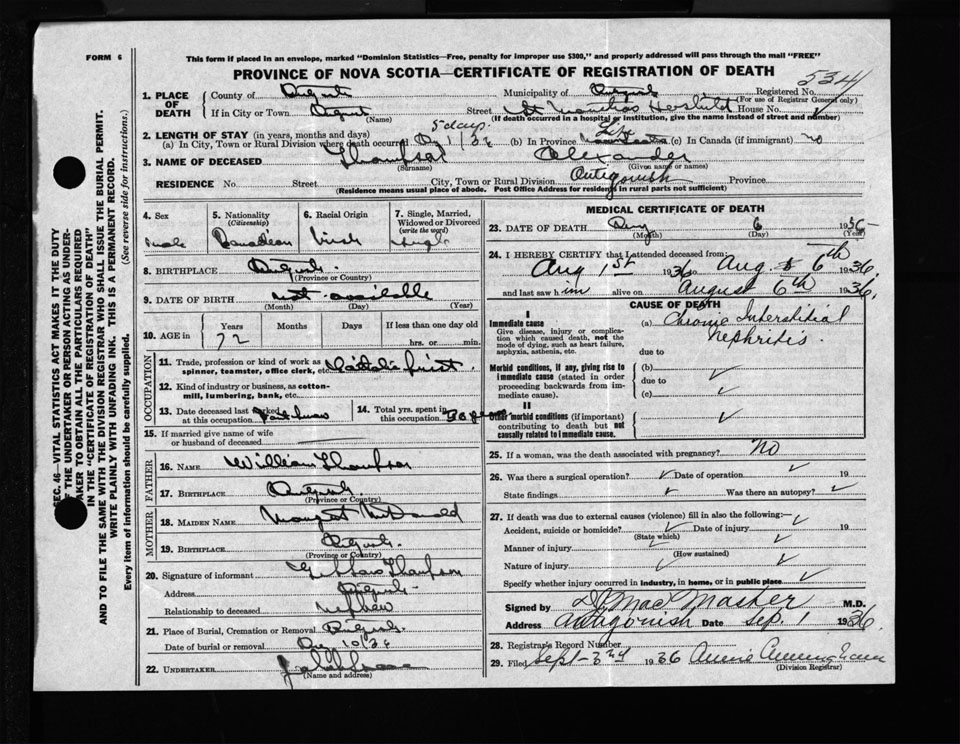 FORM 6
This form if placed in an envelope, marked "Dominion Statistics—Free, penalty for improper use $300," and properly addressed will pass through the mail "FREE"
PROVINCE OF NOVA SCOTIA—CERTIFICATE OF REGISTRATION OF DEATH
534
1. PLACE OF DEATH
County of
Municipality of
Registered No.
(For use of Registrar General only)
If in City or Town
(Name)
Street St Hospital House No.
(If death occurred in a hospital or institution, give the name instead of street and number)
2. LENGTH OF STAY (in years, months and days)
5 days
(a) In City, Town or Rural Division where death occurred
(b) In Province Life
(c) In Canada (if immigrant) no
3. NAME OF DECEASED Thompson Alexander
(Surname) (Given name or names)
RESIDENCE No. Street City, Town or Rural Division Antigonish Province
(Residence means usual place of abode. Post Office Address for residents in rural parts not sufficient)
4. Sex
male
5. Nationality
(Citizenship)
Canadian
6. Racial Origin
Irish
7. Single, Married, Widowed or Divorced
(write the word)
Single
8. BIRTHPLACE
(Province or Country)
9. DATE OF BIRTH not available
(Month) (Day) (Year)
10. AGE in
Years Months Days If less than one day old
72 hrs. or min.
OCCUPATION
11. Trade, profession or kind of work as spinner, teamster, office clerk, etc.
12. Kind of industry or business, as cotton-mill, lumbering, bank, etc.
13. Date deceased last worked at this occupation
14. Total yrs. spent in this occupation
15. If married give name of wife or husband of deceased
FATHER
16. NAME William Thompson
17. BIRTHPLACE
(Province or Country)
MOTHER
18. MAIDEN NAME Margaret McDonald
19. BIRTHPLACE
(Province or Country)
20. Signature of informant Thompson
Address
Relationship to deceased nephew
21. Place of Burial, Cremation or Removal
Date of burial or removal Aug 10/36
22. UNDERTAKER
(Name and address)
MEDICAL CERTIFICATE OF DEATH
23. DATE OF DEATH Aug 6 1936
(Month) (Day) (Year)
24. I HEREBY CERTIFY that I attended deceased from:
Aug 1st 1936 to Aug 6th 1936.
and last saw him alive on August 6th 1936.
CAUSE OF DEATH
I
Immediate cause
Give disease, injury or complication which caused death, not the mode of dying, such as heart failure, asphyxia, asthenia, etc.
(a) Chronic Interstitial
Nephritis.
due to
Morbid conditions, if any, giving rise to immediate cause (stated in order proceeding backwards from immediate cause).
(b)
due to
(c)
II
Other morbid conditions (if important) contributing to death but not causally related to immediate cause.
25. If a woman, was the death associated with pregnancy? No
26. Was there a surgical operation? Date of operation 19
State findings Was there an autopsy?
27. If death was due to external causes (violence) fill in also the following:—
Accident, suicide or homicide? Date of injury 19
(State which)
Manner of injury
(How sustained)
Nature of injury
Specify whether injury occurred in industry, in home, or in public place
Signed by MacMaster M.D.
Address Antigonish Date Sep. 1 1936
28. Registrar's Record Number
29. Filed Sept 3rd 1936 Annie Cunningham
(Division Registrar)
SEC. 46—VITAL STATISTICS ACT MAKES IT THE DUTY
OF THE UNDERTAKER OR PERSON ACTING AS UNDER-
TAKER TO OBTAIN ALL THE PARTICULARS REQUIRED
IN THE "CERTIFICATE OF REGISTRATION OF DEATH"
AND TO FILE THE SAME WITH THE DIVISION REGISTRAR WHO SHALL ISSUE THE BURIAL PERMIT.
WRITE PLAINLY WITH UNFADING INK. THIS IS A PERMANENT RECORD.
Every item of information should be carefully supplied. (See reverse side for instructions.)